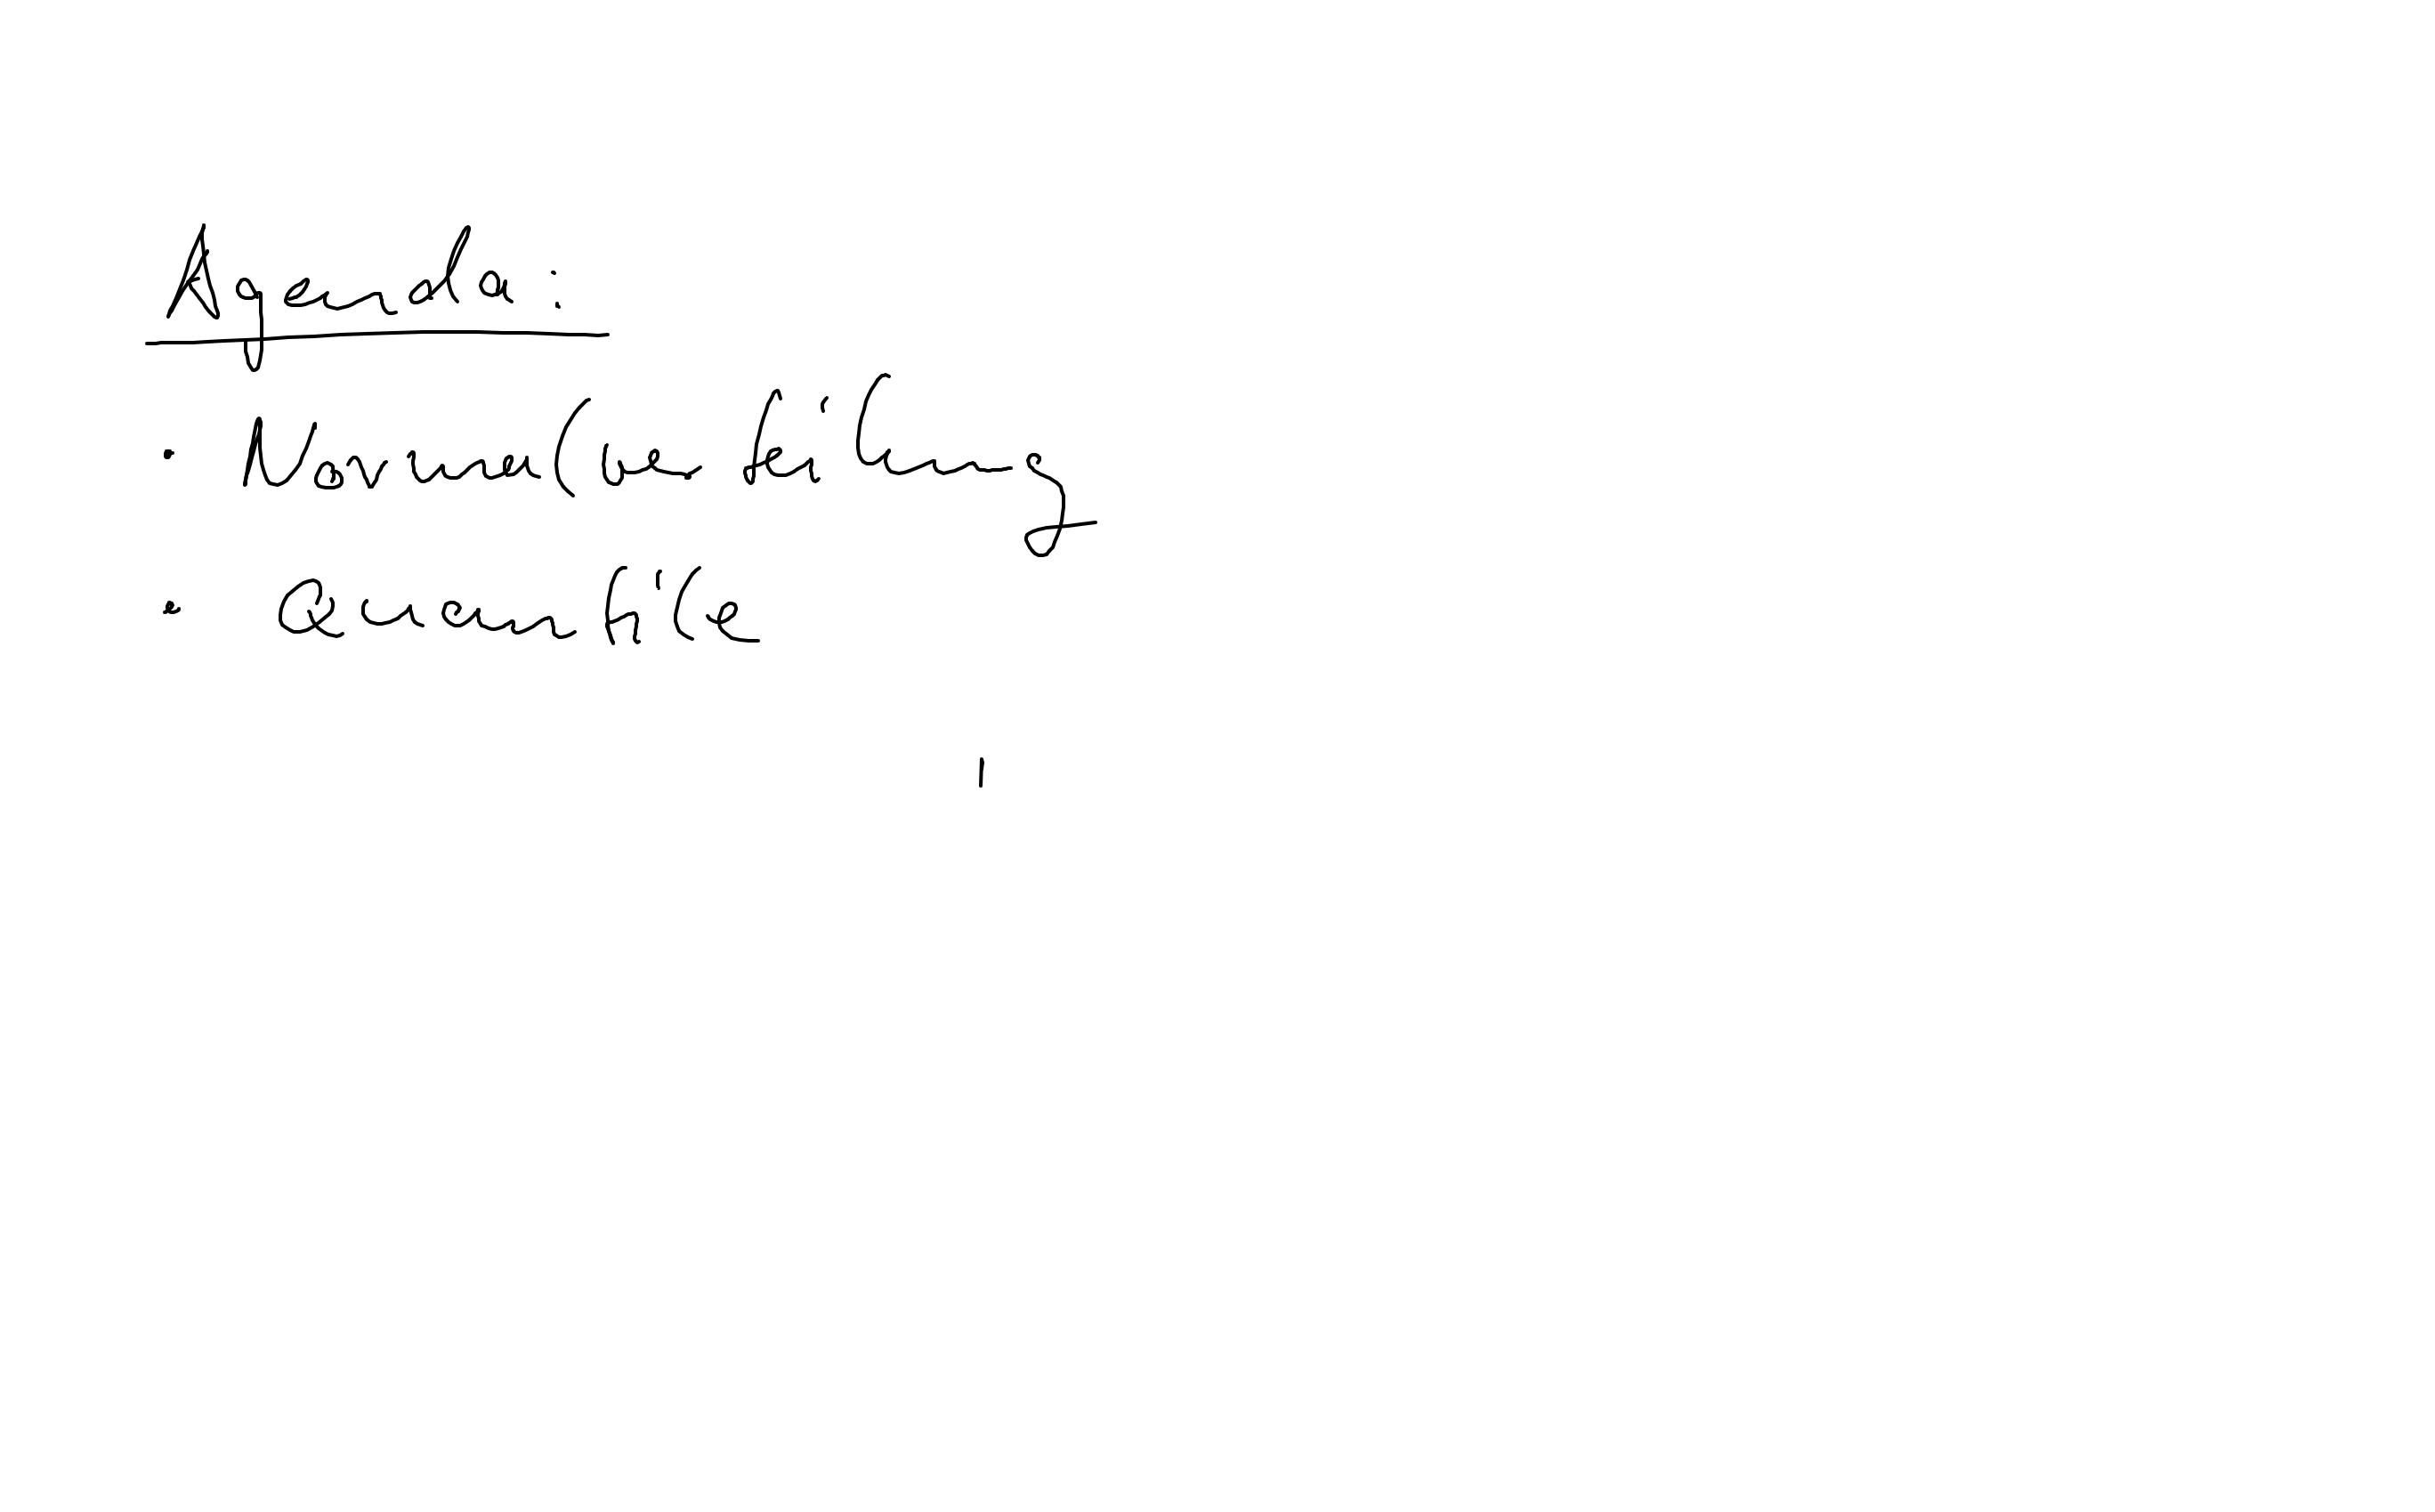 Agenda:
• Normalverteilung
• Quantile